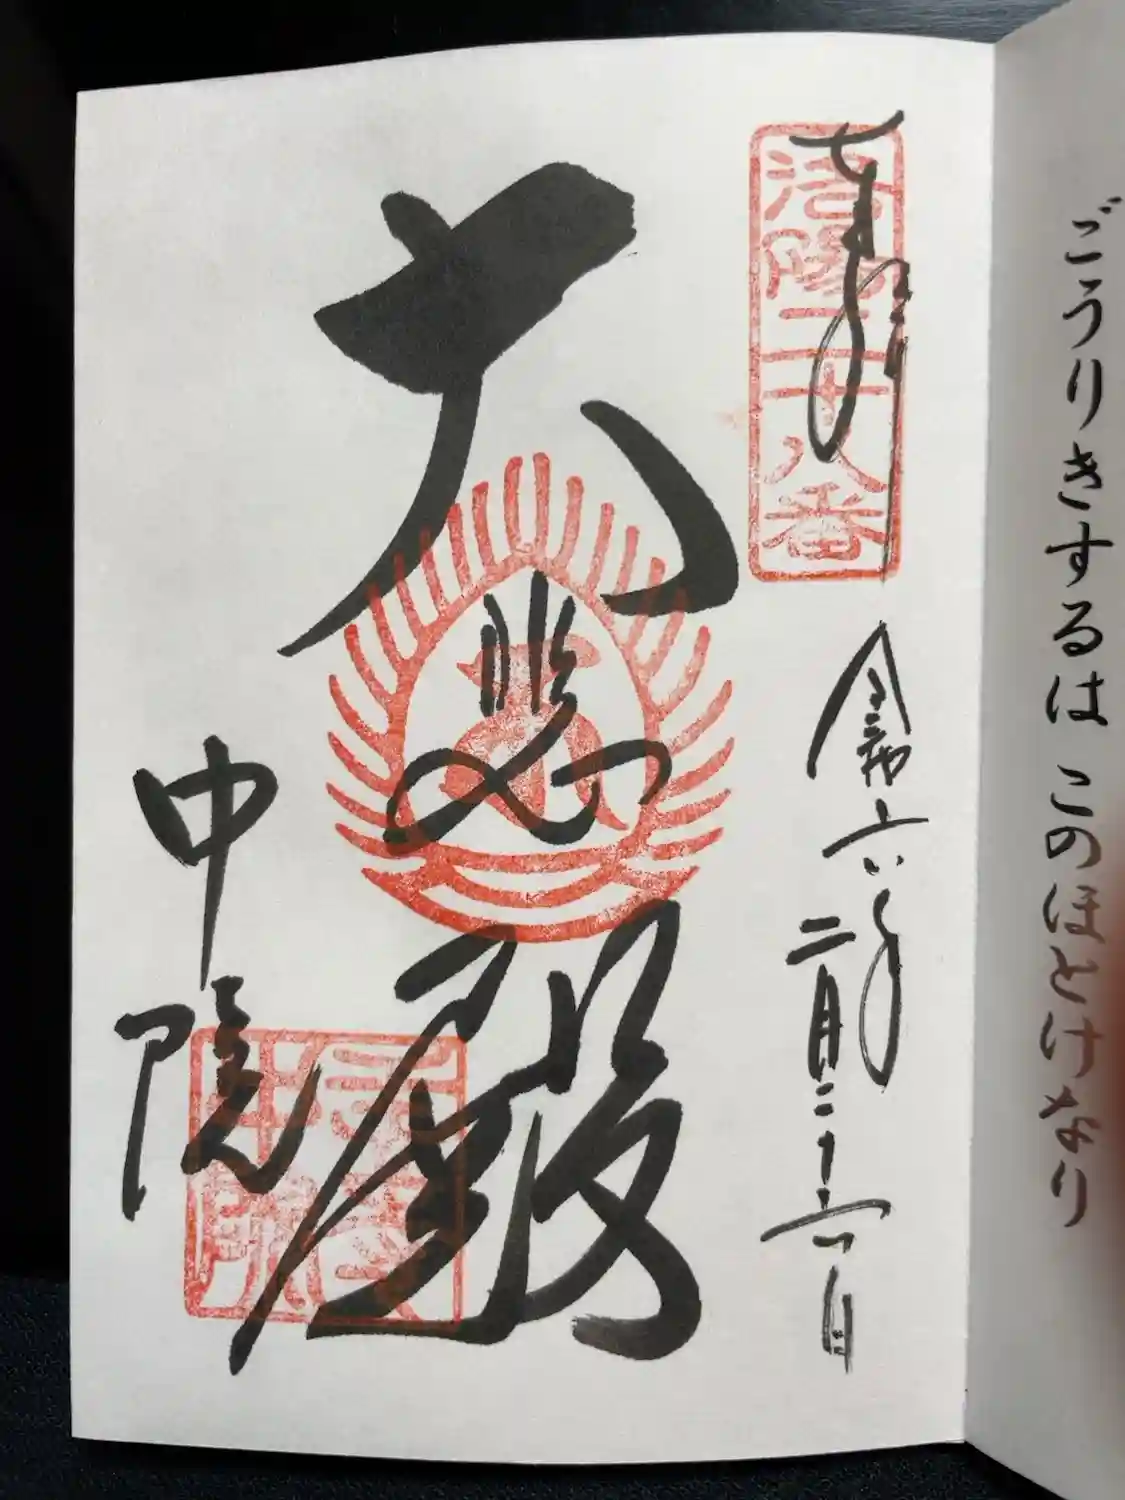 ごうりきするは このほとけなり
奉拝
洛陽二十八番
令和六年二月二十六日
大悲殿
中院